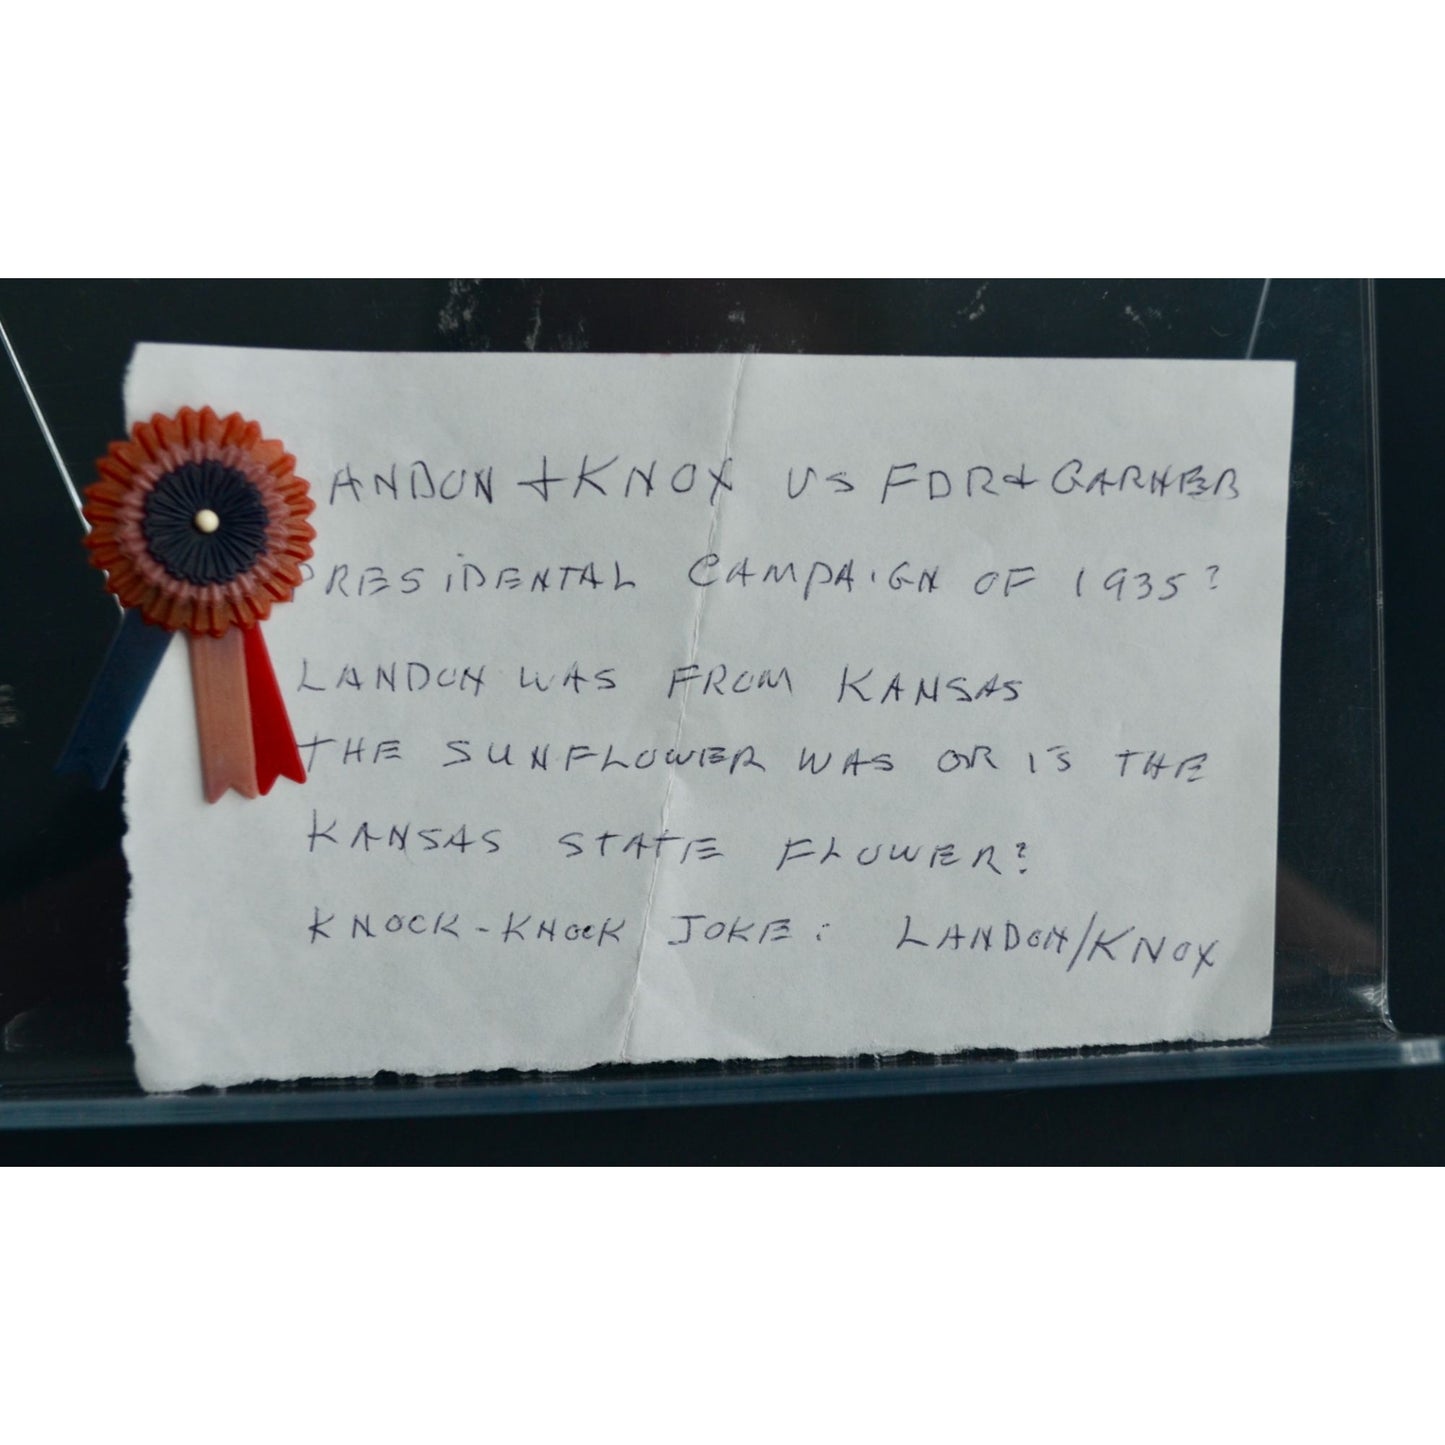 ANDON + KNOX VS FDR + GARNER
PRESIDENTAL CAMPAIGN OF 1935?
LANDON WAS FROM KANSAS
THE SUNFLOWER WAS OR IS THE
KANSAS STATE FLOWER?
KNOCK-KNOCK JOKE: LANDON/KNOX